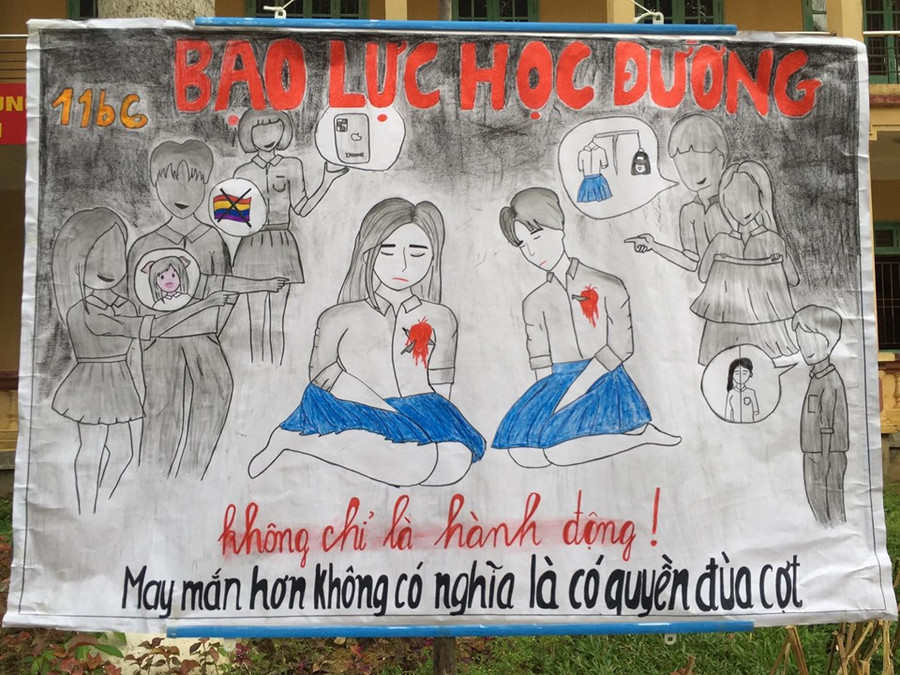 BẠO LỰC HỌC ĐƯỜNG
11b6
không chỉ là hành động!
May mắn hơn không có nghĩa là có quyền đùa cợt